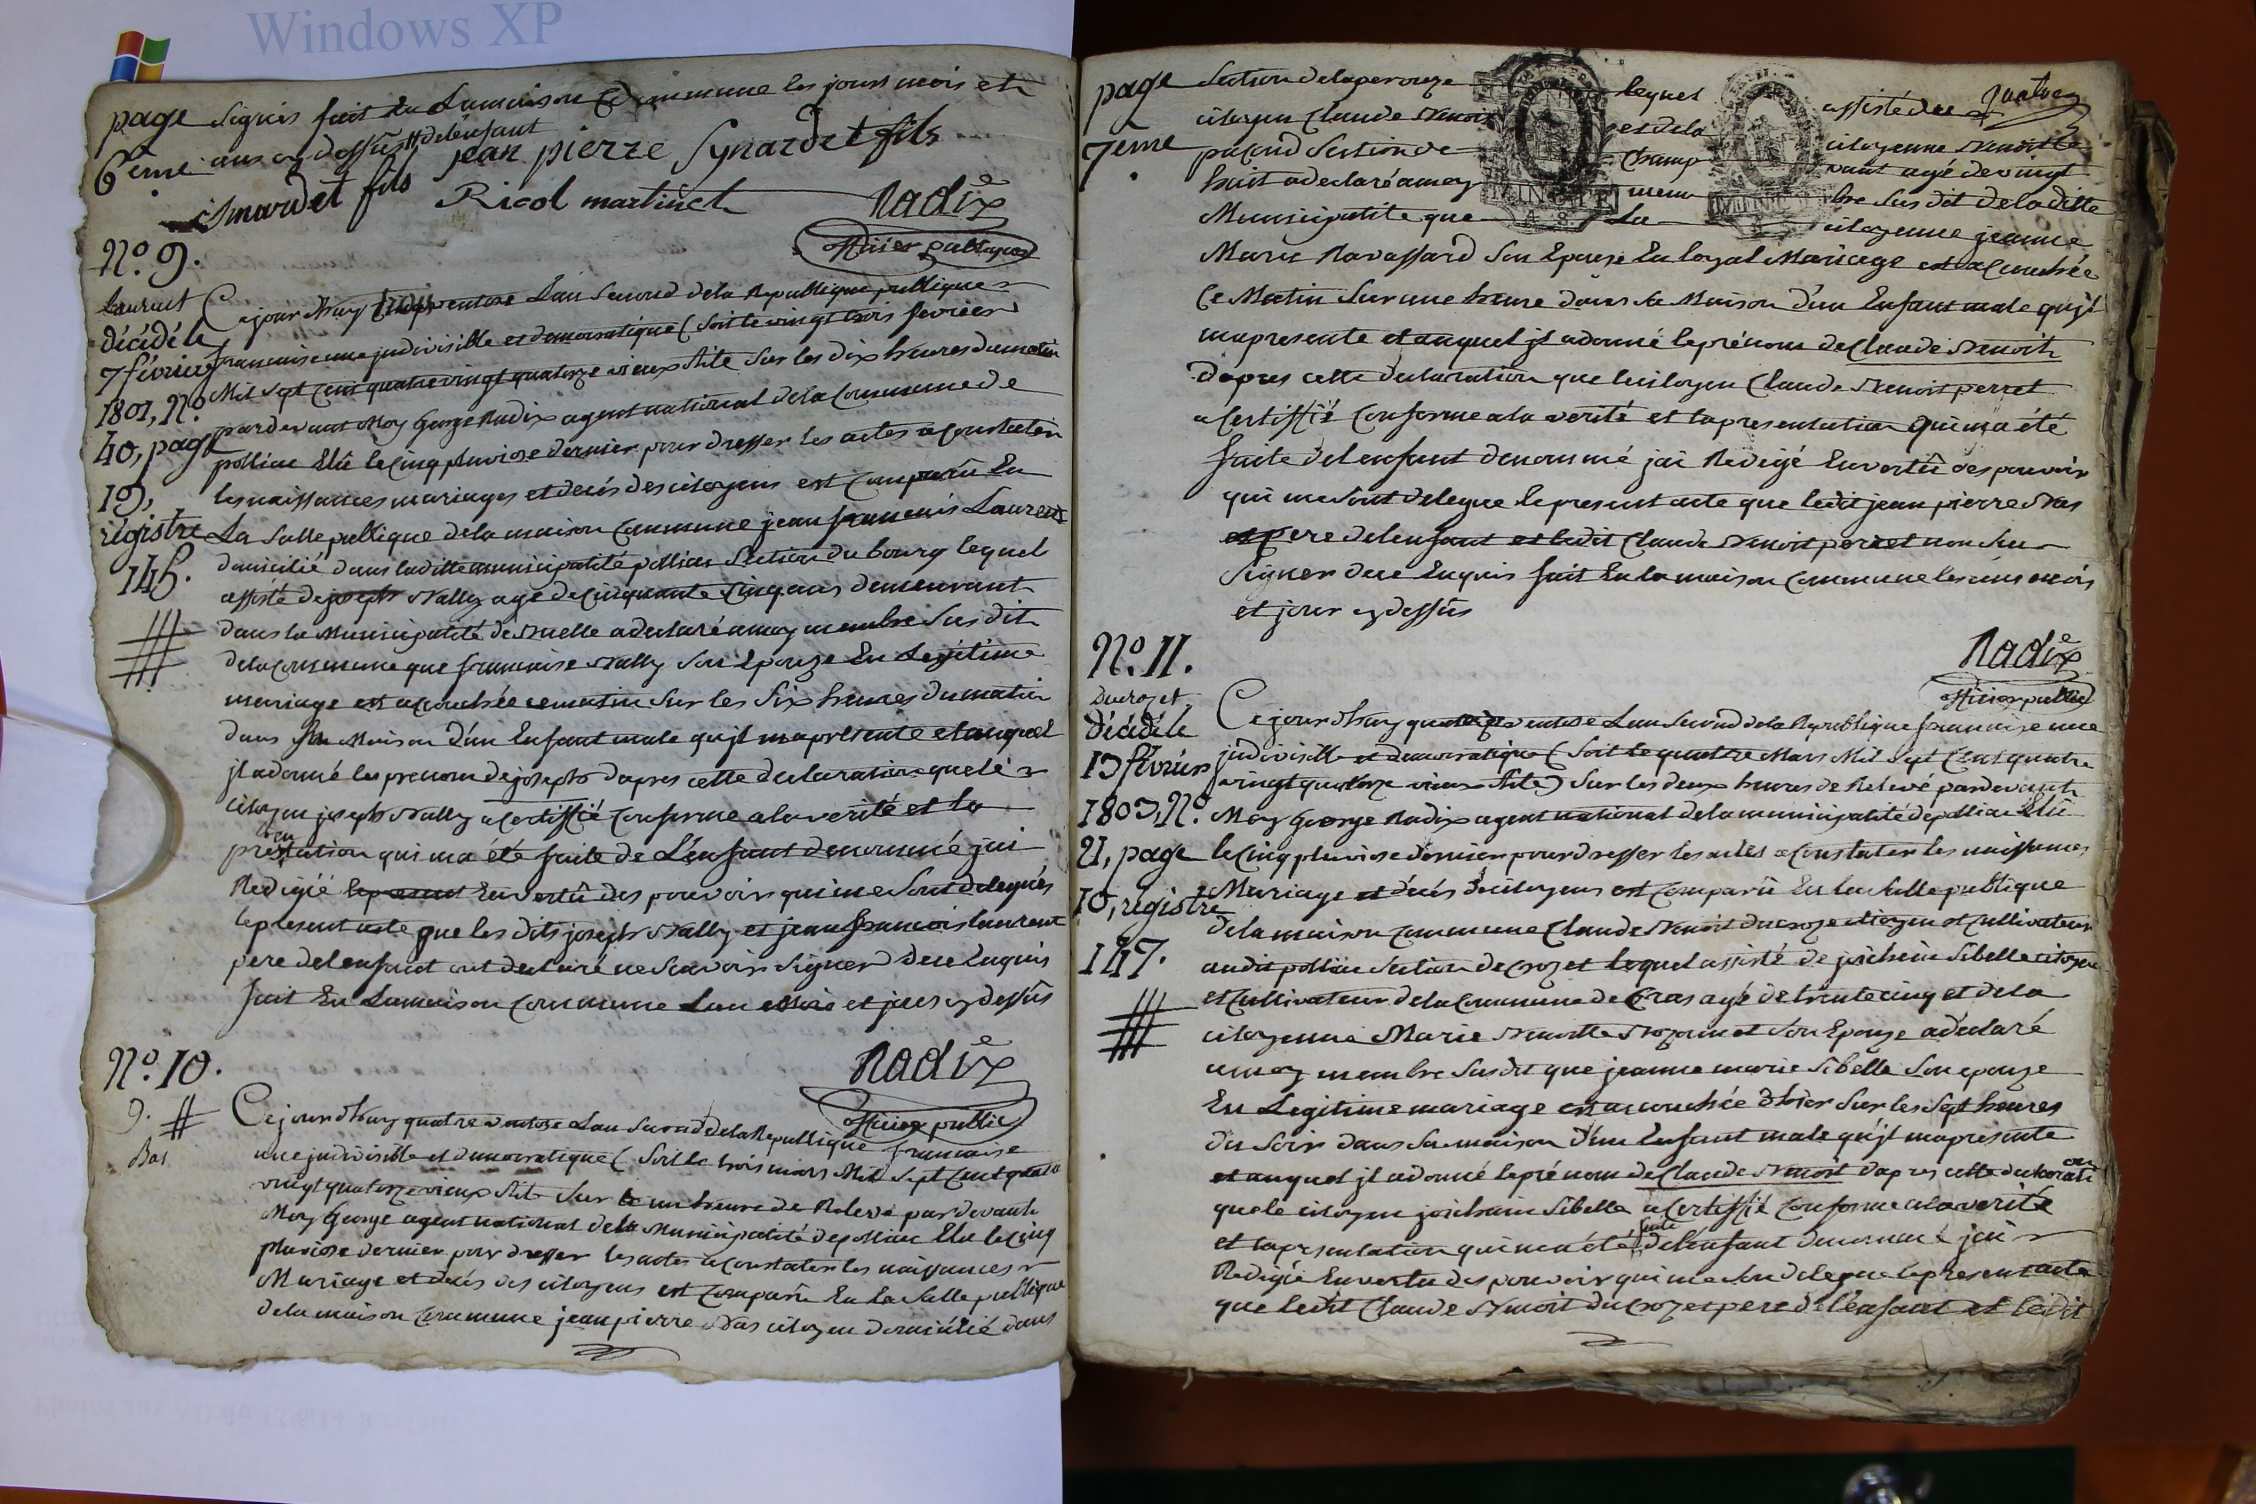 Windows XP
page
6eme
signés fait en Lamaison Commune les jours mois et
ans cy dessus delenfant
jean pierre Synardet fils
Synardet fils
Ricol martinet
Nadix
officier publique
N.o 9.
laurent
décédé le
7 février
1801, N.o
40, page
19,
régistre
145.
Ce jour dhuy cinq ventose Lan Second dela Republique publique
francaise une jndivisible et democratique (soit le vingt trois fevrier
Mil Sept Cent quatrevingt quatorze vieux stile sur les dix heures dumatin
pardevant Moy George Nadix agent national dela Commune de
polliac Elû le Cinq pluviose dernier pour dresser les actes a Constater
les naissances mariages et decés des citoyens est Comparû En
La Salle publique dela maison Commune jean francois Laurent
domicilié dans laditte municipalité polliac Section du bourg lequel
assisté de joseph Nally agé de Cinquante Cinq ans demeurant
dans la Municipalité de Buelle a declaré a moy membre Susdit
dela Commune que francoise Nally Son Epouze En Legitime
mariage est acouchée ce matin Sur les Six heures du matin
dans Sa Maison d'un Enfant male qu'jl ma présenté et auquel
jl a donné les prenom de joseph dapres cette declaration que le
citoyen joseph Nally a certiffié Conforme a la verité et la
presentation qui ma été faite de L'enfant denommé jai
Redigié le present En vertû des pouvoir qui me Sont delegués
le present acte que les dits joseph Nally et jean francois laurent
pere delenfant ont declaré ne Scavoir Signer de ce Enquis
fait En Lamaison Commune Lan mois et jour cy dessûs
Nadix
officier public
N.o 10.
9.
Bas
Ce jour dhuy quatre ventose Lan Second dela Republique francaise
une jndivisible et democratique (soit le trois mars Mil Sept Cent quatre
vingt quatorze vieux stile Sur le une heure de Relevé pardevant
Moy George agent national dela Municipalité de polliac Elu le Cinq
pluviose dernier pour dresser les actes a Constater les naissances
Mariage et decés des citoyens est Comparû En La Salle publique
dela maison Commune jean pierre Bas citoyen domicilié dans
page
7eme
Section delaperouze lequel assisté du
citoyen Claude Benoit et dela citoyenne Benoitte
Champ vant agé de vingt
huit a declaré a moy membre Sus dit de la ditte
Municipalite que La citoyenne jeanne
Marie Ravassard Son Epouze En loyal Mariage est acouchée
Ce Matin Sur une heure dans Sa Maison d'un Enfant male qu'jl
ma presenté et auquel jl a donné le prénom de Claude Benoit
dapres cette declaration que le citoyen Claude Benoit perret
a Certiffié Conforme a la verité et la presentation qui ma été
faite delenfant denommé jai Redigé En vertû des pouvoir
qui me Sont delegue le present acte que ledit jean pierre Bas
et pere delenfant et ledit Claude Benoit perret non Seu
Signer de ce Enquis fait En la maison Commune les ans mois
et jour cy dessûs
Nadix
officier public
N.o 11.
Ducrozet
décédé le
13 février
1803, N.o
21, page
10, régistre
147.
Ce jour dhuy quatorze ventose Lan Second dela Republique francaise une
jndivisible et democratique (Soit le quattre Mars Mil Sept Cent quatre
vingt quatorze vieux stile) Sur les deux heures de Relevé pardevant
Moy George Nadix agent national dela municipalité de polliac Elû
le Cinq pluviose dernier pour dresser les actes a Constater les naissances
Mariage et décés de citoyens est Comparû En La Salle publique
dela maison Commune Claude Benoit ducroze citoyen et Cultivateur
audit polliac Section de crozet lequel assisté de joichain Sibelle citoyen
et Cultivateur dela Commune de Cras agé de trente cinq et dela
citoyenne Marie Benoitte Son Epouze a declaré
a moy membre Susdit que jeanne marie Sibelle Son epouze
En Legitime mariage est acouchée dhier Sur les Sept heures
du Soir dans Sa maison d'un Enfant male qu'jl ma presenté
et auquel jl a donné le prénom de Claude Benoit dapres cette declaration
que le citoyen joichain Sibelle a Certiffié Conforme a la verité
et la presentation qui ma été faite delénfant denommé jai
Redigié En vertu des pouvoir qui me Son delegue le present acte
que ledit Claude Benoit du Crozet pere de lénfant et ledit